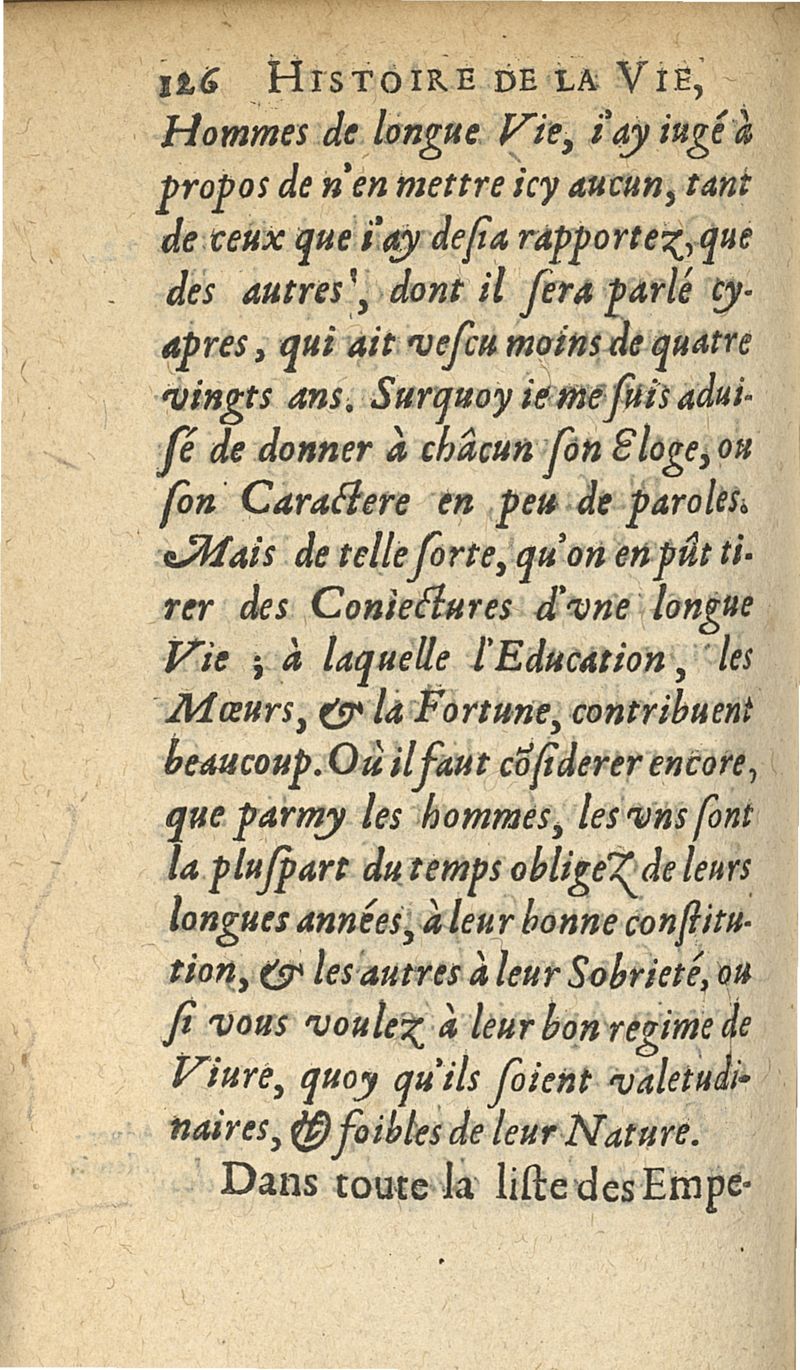 126 HISTOIRE DE LA VIE,
Hommes de longue Vie, i'ay iugé à
propos de n'en mettre icy aucun, tant
de ceux que i'ay deſia rapportez, que
des autres', dont il ſera parlé cy-
apres, qui ait veſcu moins de quatre
vingts ans. Surquoy ie me ſuis adui-
ſé de donner à châcun ſon Eloge, ou
ſon Caractere en peu de paroles.
Mais de telle ſorte, qu'on en pût ti-
rer des Coniectures d'vne longue
Vie ; à laquelle l'Education, les
Mœurs, & la Fortune, contribuent
beaucoup. Où il faut cõſiderer encore,
que parmy les hommes, les vns ſont
la pluſpart du temps obligeZ de leurs
longues années, à leur bonne conſtitu-
tion, & les autres à leur Sobrieté, ou
ſi vous voulez à leur bon regime de
Viure, quoy qu'ils ſoient valetudi-
naires, & foibles de leur Nature.
Dans toute la liſte des Empe-